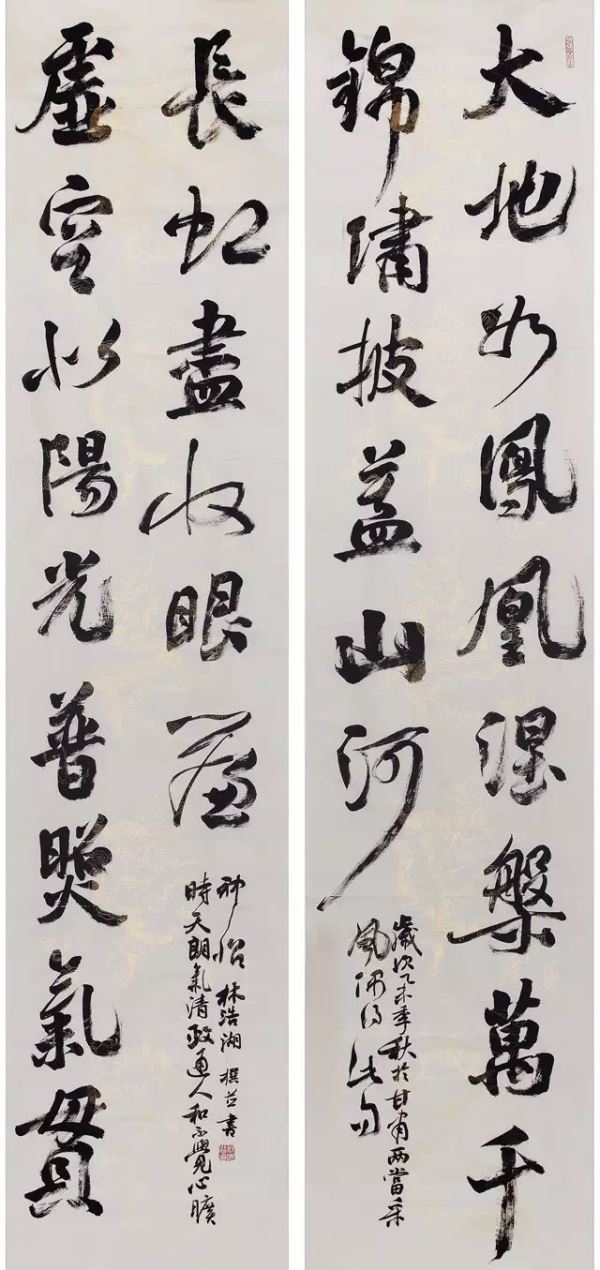 大地如鳳凰涅槃萬千
錦繡披蓋山河
歲次乙未季秋於甘肅两當采
風偶得此句
虛空似陽光普照氣貫
長虹盡收眼簾
時天朗氣清政通人和不覺心曠
神怡 林浩湖撰並書